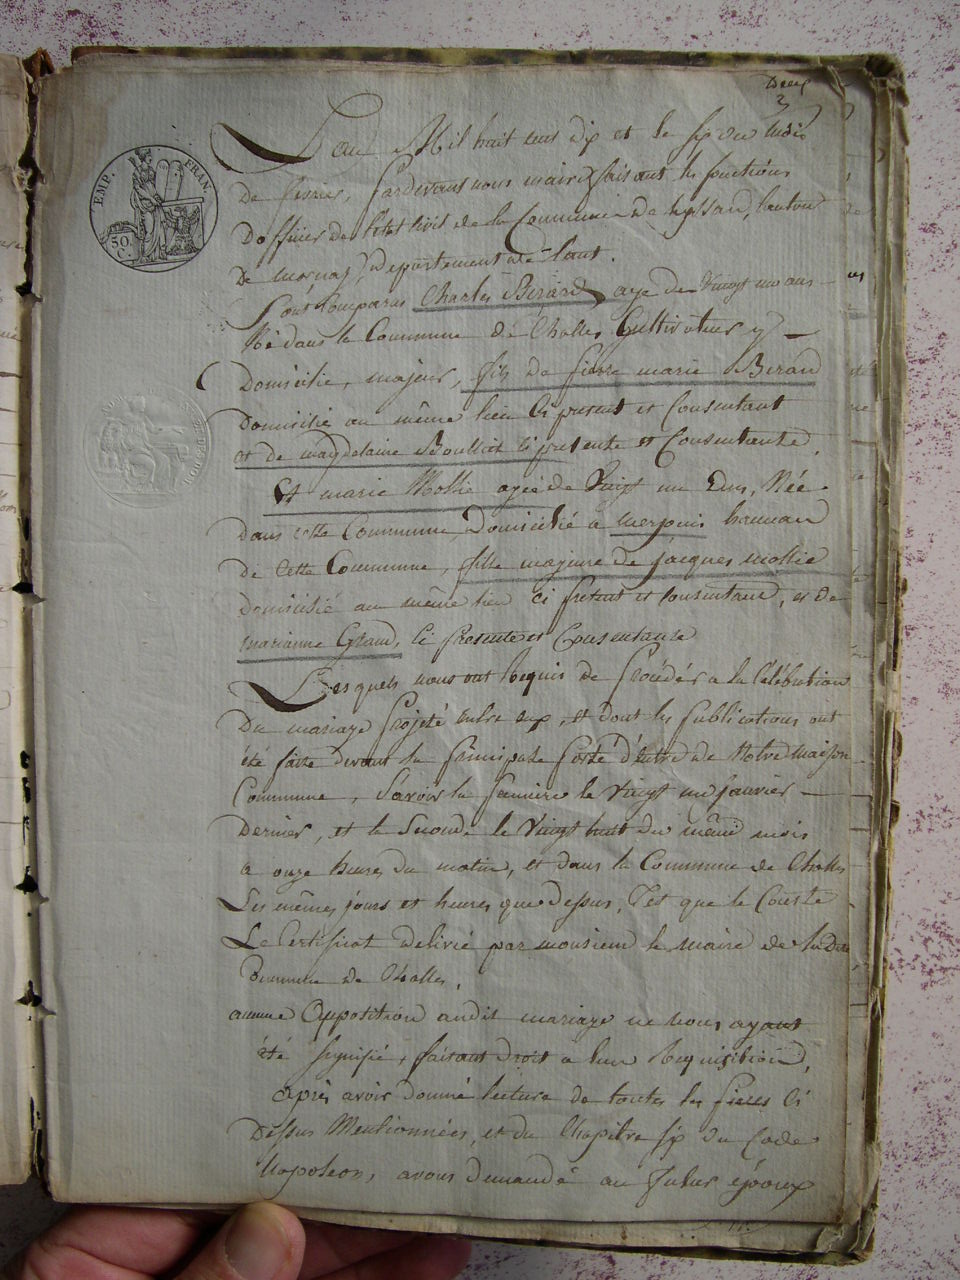 Deux
2
EMP. FRAN.
50.
C.
L'an Mil huit cent dix et le six du mois
De fevrier, pardevant nous maire faisant les fonctions
Dofficier de l'état civil de la Commune de leyssard, Canton
De , Département de Laint.
Sont Comparus Charles Berard, agé de Vingt un ans
Né dans la Commune de Challes, Cultivateur y
Domicilié, majeur, fils de pierre marie Berard
Domicilié au même lieu Ci present et Consentant
et de magdelaine Boulliat Ci presente et Consentente,
Et marie Mollie agée de Vingt un Ens, Née
Dans cette Commune, Domicilié a merpuis hameau
de Cette Commune, fille majeure de jacques mollie
Domicilié au même lieu Ci present et Consentant, et de
marianne Grand, Ci presente et Consentante
Lesquels nous ont Requis de procéder a la Célébration
Du mariage projeté entre eux, et dont les publications ont
été faite devant la principale porte d'entré de Notre Maison
Commune, Savoir la premiere le Vingt un janvier
Dernier, et la Seconde le Vingt huit du même mois
a onze heures du matin, et dans la Commune de Challes
Les mêmes jours et heures que Dessus, Tel que le Conste
Le Certificat delivré par monsieur le maire de la Dite
Commune de Challes,
aucune Opposition audit mariage ne nous ayant
été signifié, faisant droit a leur Requisition,
après avoir donné lecture de toutes les pieces Ci
Dessus Mentionnées, et du Chapitre six du Code
Napoleon, avons demandé au futur époux